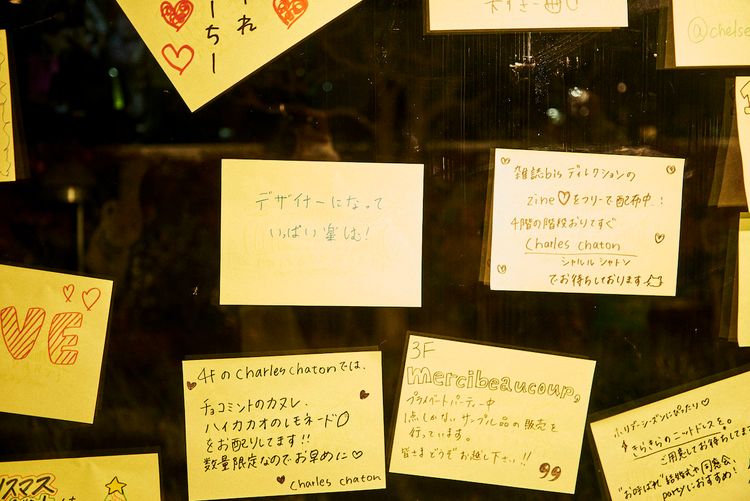 れ
ちー
@chelse
デザイナーになって
いっぱい楽しむ!
雑誌bisディレクションの
zine♡をフリーで配布中!
4階の階段おりてすぐ
Charles chaton
シャルル シャトン
でお待ちしております
VE
4Fの Charles chatonでは、
チョコミントのカヌレ、
ハイカカオのレモネード
をお配りしてます!!
数量限定なのでお早めに♡
Charles chaton
3F
mercibeaucoup,
プライベートパーティー中
1点しかないサンプル品の販売を
行っています。
皆さまどうぞお越し下さい!!
ホリデーシーズンにぴったり♡
きらきらのニットドレスを。
ご用意してお待ちしてま
"お呼ばれ"結婚式や同窓会、
partyにおすすめ!
リスマス